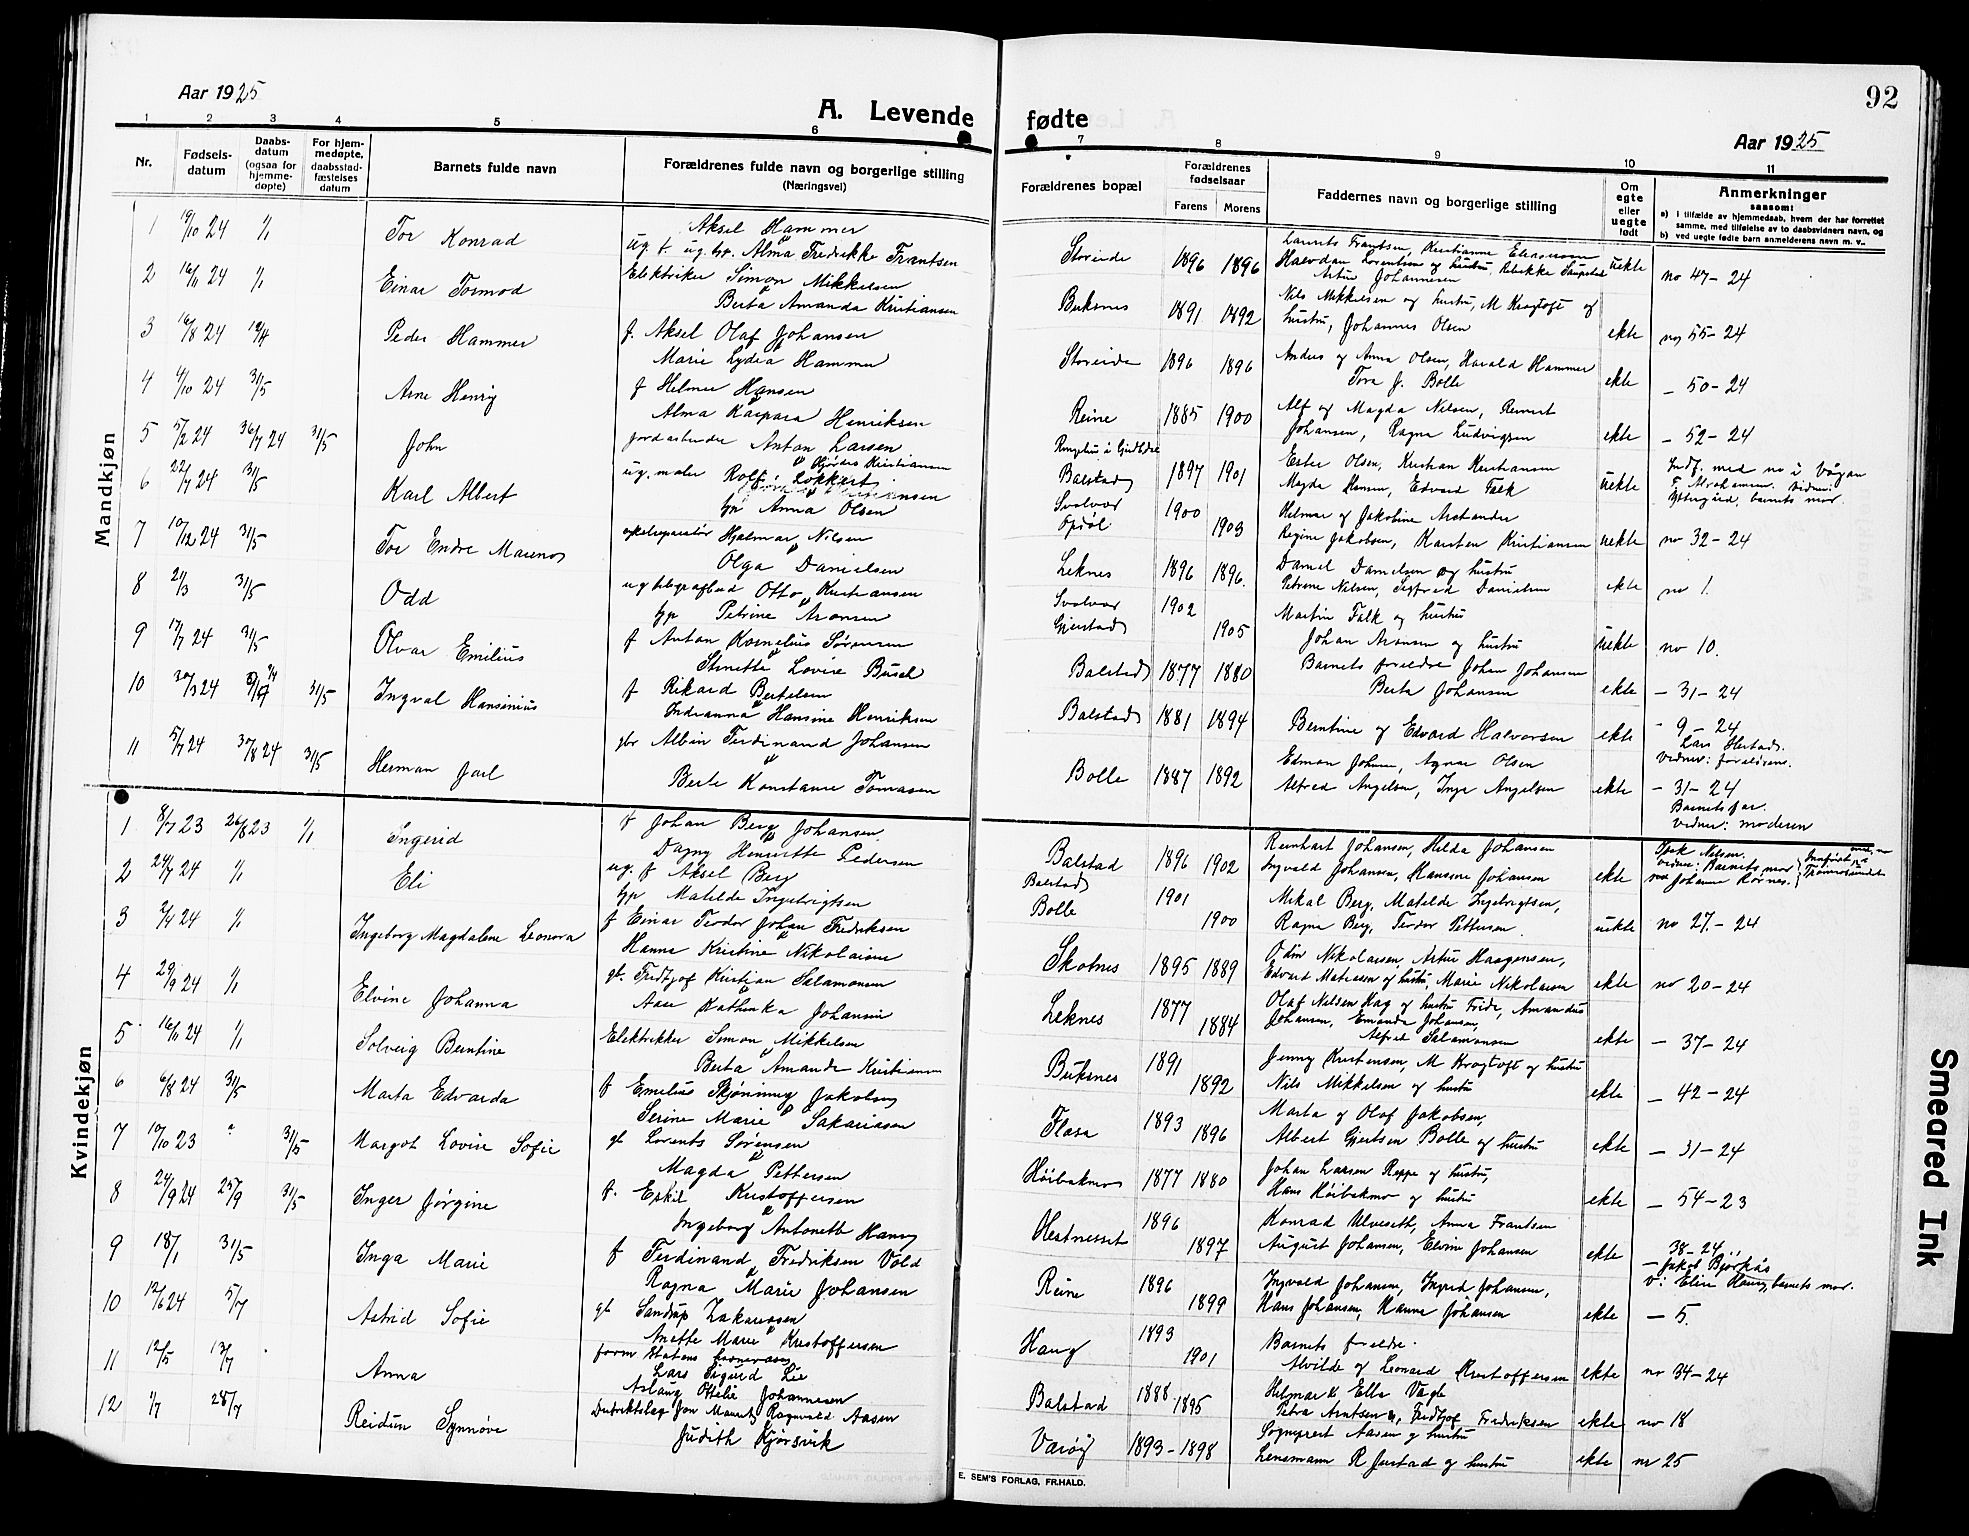 92
Aar 1925
A. Levende fødte
Aar 1925
1 2 3 4 5 6 7 8 9 10 11
Nr.
Fødsels-datum
Daabs-datum (ogsaa for hjemme-døpte)
For hjem-medøpte, daabsstad-fæstelses datum
Barnets fulde navn
Forældrenes fulde navn og borgerlige stilling
(Næringsvei)
Forældrenes bopæl
Forældrenes fødselsaar
Farens Morens
Faddernes navn og borgerlige stilling
Om egte eller uegte født
Anmerkninger
sansom:
a) i tilfælde av hjemmedaab, hvem der har forrettet samme, med tilføielse av to daabsvidners navn, og
b) ved uegte fødte barn anmelderens navn m. v.
Mandkjøn
1 19/10 24 1/1 Tor Konrad Aksel Hammer
ug. f. ug. hp. Alma Fredrikke Frantsen Storeide 1896 1896 Laurits Frantsen, Kristianne
Halvdan Lorentsen og hustru,
Artur Johannesen uekte no 47-24
2 16/11 24 1/1 Einar Tormod Elektriker Simon Mikkelsen
Berta Amanda Kristiansen Buksnes 1891 1892 Nils Mikkelsen og hustru, M Krogtoft og
hustru, Johannes Olsen ekte no 55-24
3 16/8 24 Peder Hammer f. Aksel Olaf Johansen
Marie Lydia Hammer Storeide 1896 1896 Anders og Anna Olsen, Harald Hammer
Tora J. Bolle ekte - 50-24
4 4/10 24 31/5 Arne Henrig f Helmer Hansen
Alma Kaspara Henriksen Reine 1885 1900 Alf og Magda Nilsen,
Johansen, Ragna Ludvigsen ekte - 52-24
5 5/2 24 31/5 John Anton Larsen
Hjørdis Kristiansen
Balstad 1897 1901 Ester Olsen, Kristian Kristiansen
Magda Hansen, Edvard Falk uekte Indf. med no i Vågan
barnets mor.
6 22/7 24 31/5 Karl Albert ug. maler Rolf Løkkert
hp Anna Olsen Svolvær
Opdøl 1900 1903 Helmer og Jakobine
Regine Jakobsen, Karsten Kristiansen uekte no 32-24
7 10/12 24 31/5 Tor Endre Marenos Hjalmar Nilsen
Olga Danielsen Leknes 1896 1896. Daniel Danielsen og hustru
Petrine Nilsen, Sigfred Danielsen ekte no 1.
8 21/3 31/5 Odd ug Otto Kristiansen
hp Petrine Aronsen Svolvær
Gjerstad 1902 1905 Martin Falk og hustru
Johan Aronsen og hustru uekte no 10.
9 17/7 24 31/5 Olvar Emilius f Anton Kornelius Sørensen
Stinette Lovise Busel Balstad 1877 1880 Barnets foreldre Johan Johansen
Berta Johansen ekte - 31-24
10 30/3 24 31/5 Ingval Hansinius f Rikard Bertelsen
Indianna Hansine Henriksen Balstad 1881 1894 Berntine og Edvard Halvorsen ekte - 9-24
Lars Hestads.
vidner: foreldrene.
11 5/7 24 30/8 24 31/5 Herman Jarl gbr Albin Ferdinand Johansen
Berle Konstanse Tomasen Bolle 1887 1892 Edmon Johnsen, Agnar Olsen
Alfred Angelsen, Inga Angelsen ekte - 31-24
Barnets far.
vidner: moderen
Kvindekjøn
1 8/7 23 26/8 23 1/1 Ingerid f Johan Berg Johansen
Dagny Henriette Pedersen Balstad 1896 1902 Reinhart Johansen, Helda Johansen
Ingvald Johansen, Hansine Johansen ekte Isak Nilsen.
vidner: Barnets mor
Johanne Kornes.
2 24/7 24 1/1 Eli ug. f Aksel Berg
hp Matilde Ingebrigtsen Balstad
Bolle 1901 1900 Mikal Berg, Matilde Ingebrigtsen,
Ragna Berg, Teodor Pettersen. uekte no 27-24
3 2/4 24 1/1 Ingeborg Magdalene Leonora f Einar Teodor Johan Fredriksen
Hanna Kristine Nikolaisen Skotnes 1895 1889 Odin Nikolaisen, Artur Haagensen,
Edvard Matiesen og hustru, Marie Nikolaisen ekte no 20-24
4 29/9 24 1/1 Elvine Johanna gb. Fridtjof Kristian Salamonsen
Aase Kathinka Johansen Leknes 1877 1884 Olaf Nilsen Hag og hustru Fride, Amandus
Johansen, Emanda Johansen,
Alfred Salamonsen ekte - 37-24
5 16/11 24 1/1 Solveig Berntine Elektrikker Simon Mikkelsen
Berta Amanda Kristiansen Buksnes 1891 1892 Jenny Kristensen, M Krogtoft og hustru
Nils Mikkelsen og hustru ekte - 42-24
6 6/8 24 31/5 Marta Edvarda f Emelius Skjønning Jakobsen
Serine Marie Sakariasen Flasa 1893 1896 Marta og Olaf Jakobsen,
Albert Gjertsen Bolle og hustru ekte - 31-24
7 10/10 23 31/5 Margot Lovise Sofie gb Lorents Sørensen
Magda Pettersen Høibakmo 1877 1880 Johan Larsen Reppe og hustru,
Hans Høibakmo og hustru ekte - 54-23
8 24/9 24 25/9 31/5 Inger Jørgine f. Eskil Kristoffersen
Ingeborg Antonette Haug Hestnesset 1896 1897 Konrad Ulveseth, Anna Frantsen
August Johansen, Elvine Johansen ekte 38-24
- Jakob Bjørkås
v: Elise Haug, barnets mor.
9 18/1 31/5 Inga Marie f Ferdinand Fredriksen Vold
Ragna Marie Johansen Reine 1896 1899 Ingvald Johansen, Ingrid Johansen,
Hans Johansen, Hanna Johansen ekte - 5.
10 12/6 24 5/7 Astrid Sofie gb Sandrup Zakariassen
Anette Marie Kristoffersen Haug 1893 1901 Barnets foreldre.
Alvilde og Leonard Kristoffersen ekte no 34-24
11 12/5 13/7 Anna form Statens
Lars Sigurd Lie
Aslaug Otelie Johannesen Balstad 1888 1895 Helmer & Ella Vågle
Petra Arntsen &, Fridtjof Fredriksen ekte no 18
12 1/7 28/7 Reidun Synnøve Distriktslæg Jon Maurits Ragnvald Aasen
Judith Kjørsvik Værøy 1893-1898 Sogneprest Aasen og hustru
Lensmann R Jusstad og hustru ekte nr 25
E. SEM'S FORLAG, FR.HALD.
Smeared Ink